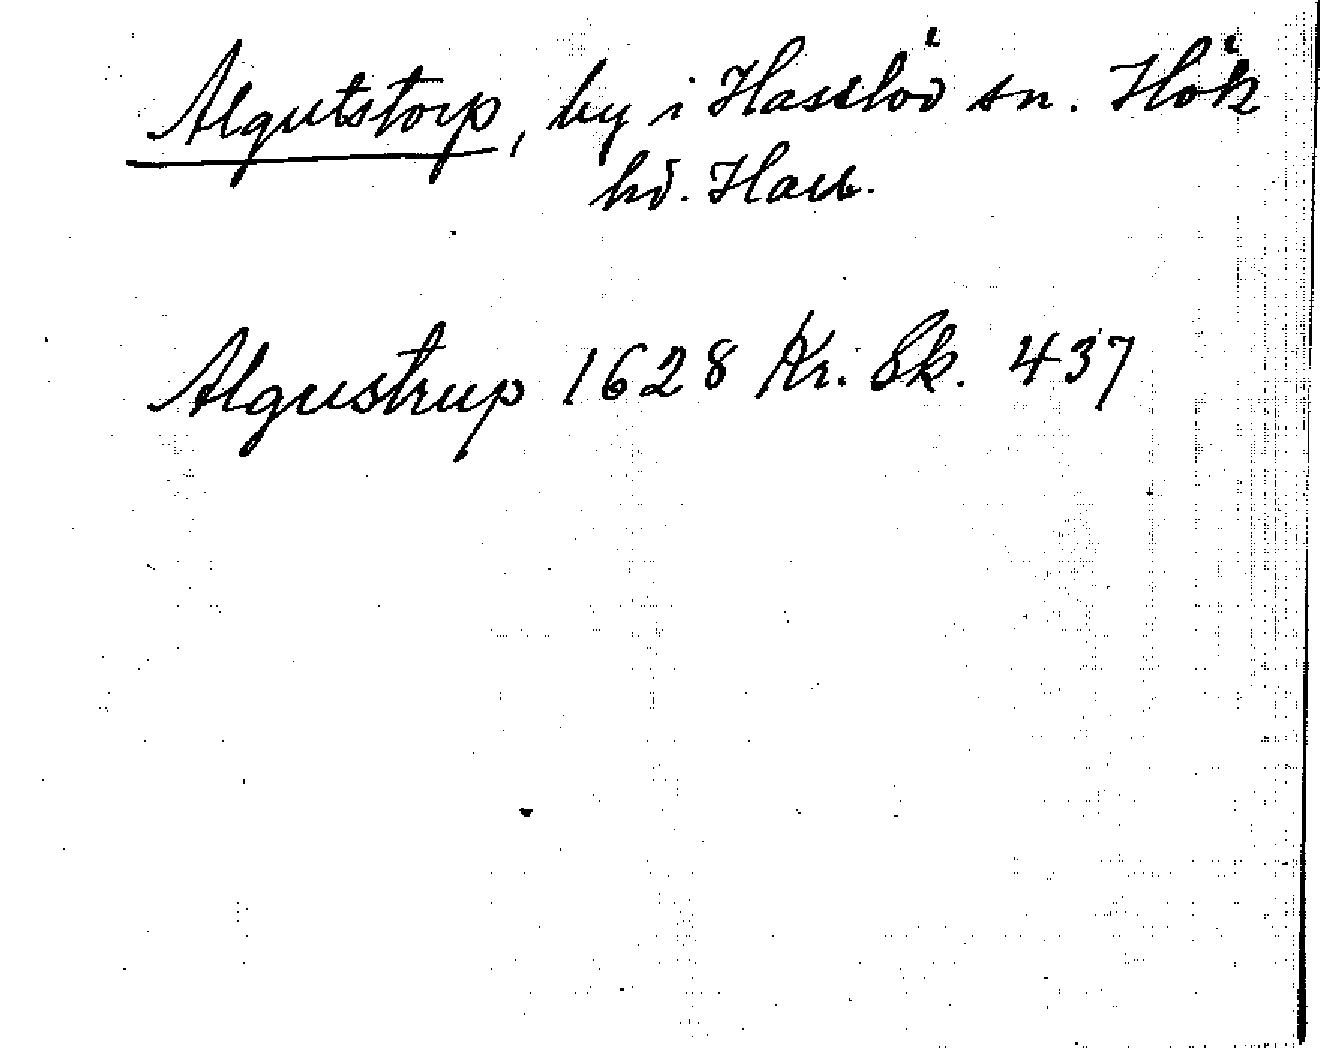 Algutstorp, by i Hasslöv sn. Hök
hd. Hall.
Algustrup 1628 Kr. Sk. 437